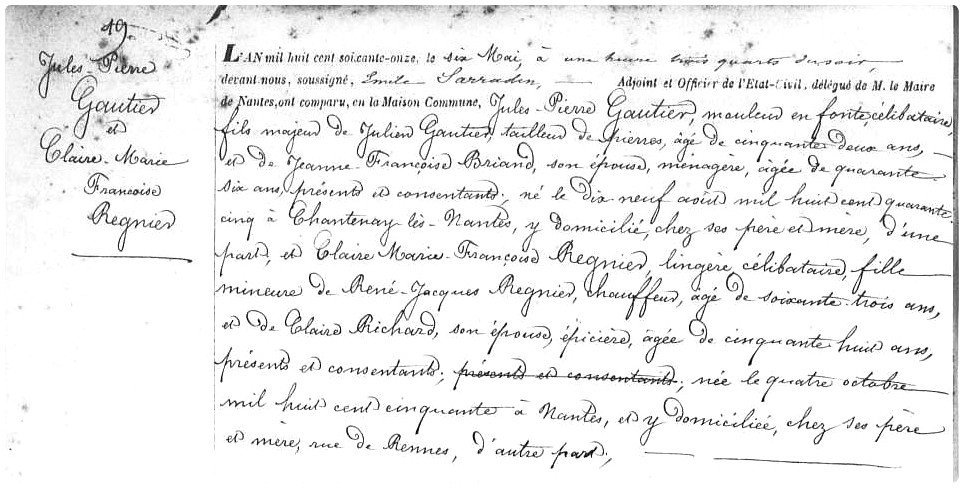 49.
Jules-Pierre
Gautier
et
Claire-Marie
Françoise
Regnier
L'AN mil huit cent soixante-onze, le six Mai, à une heure trois quarts du soir,
devant nous, soussigné, Emile Sarradin, Adjoint et Officier de l'Etat-Civil, délégué de M. le Maire
de Nantes, ont comparu, en la Maison Commune, Jules-Pierre Gautier, mouleur en fonte, célibataire,
fils majeur de Julien Gautier, tailleur de pierres, âgé de cinquante deux ans,
et de Jeanne-Françoise Briand, son épouse, ménagère, âgée de quarante
six ans, présents et consentants; né le dix neuf août mil huit cent quarante
cinq à Chantenay-lès-Nantes, y domicilié, chez ses père et mère, d'une
part, et Claire Marie-Françoise Regnier, lingère, célibataire, fille
mineure de René-Jacques Regnier, chauffeur, âgé de soixante-trois ans,
et de Claire Richard, son épouse, épicière, âgée de cinquante huit ans,
présents et consentants; présents et consentants; née le quatre octobre
mil huit cent cinquante à Nantes, et y domiciliée, chez ses père
et mère, rue de Rennes, d'autre part,